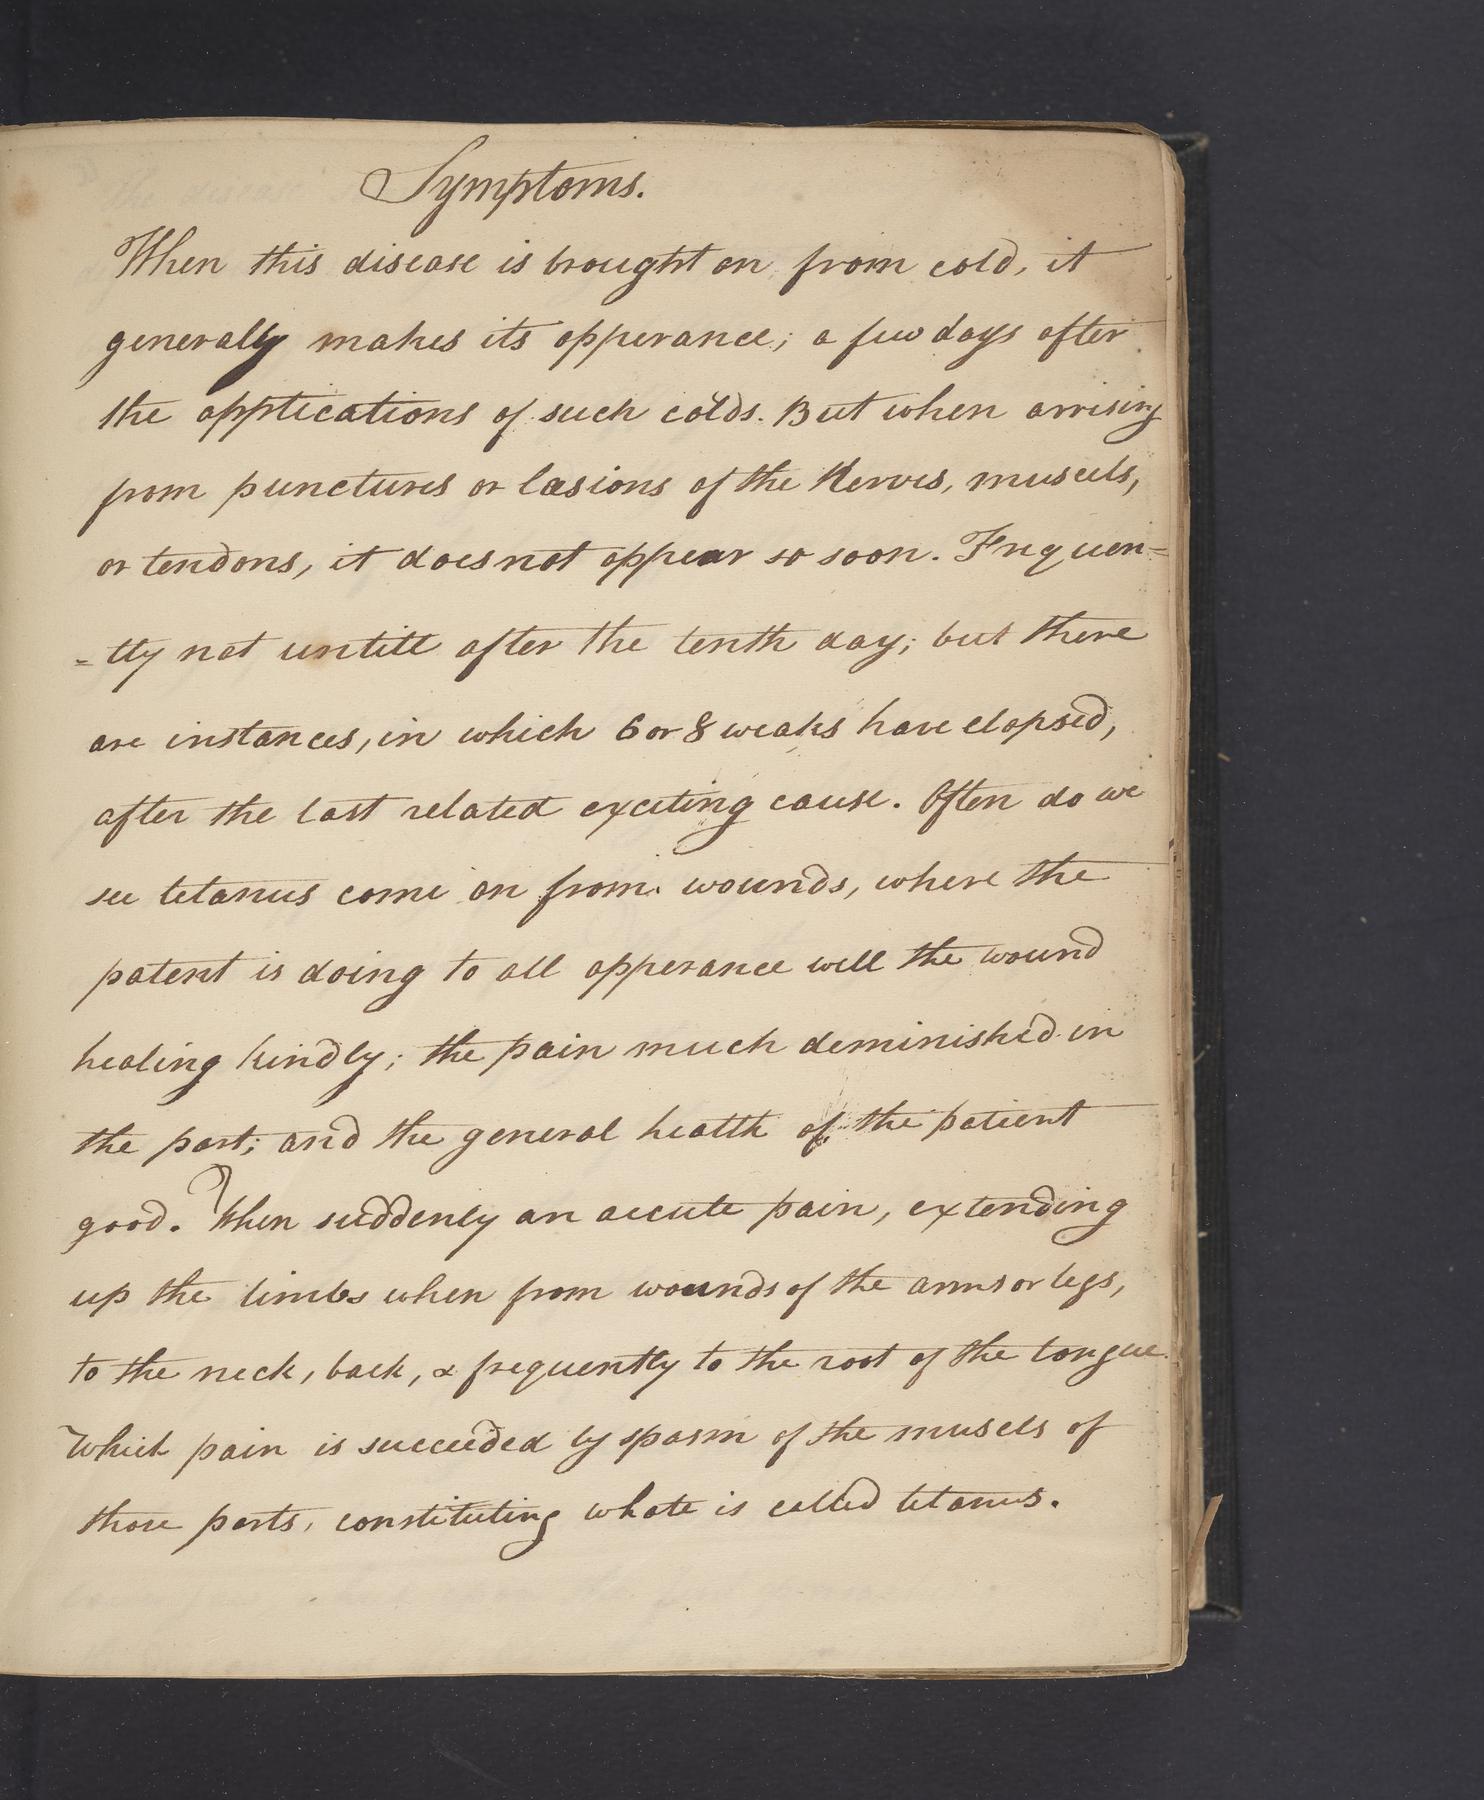 Symptoms.
When this disease is brought on from cold, it
generally makes its apperance; a few days after
the applications of such colds. But when arrising
from punctures or læsions of the Nerves, muscels,
or tendons, it does not appear so soon. Frequen=
=tly not untill after the tenth day; but there
are instances, in which 6 or 8 weaks have elapsed,
after the last related exciting cause. Often do we
see tetanus come on from wounds, where the
patent is doing to all apperance well the wound
healing kindly; the pain much deminished in
the part; and the general health of the patient
good. When suddenly an accute pain, extending
up the limbs when from wounds of the arms or legs,
to the neck, back, & frequently to the root of the tongue.
Which pain is succeeded by spasm of the muscels of
those parts, constituting whate is called tetanus.